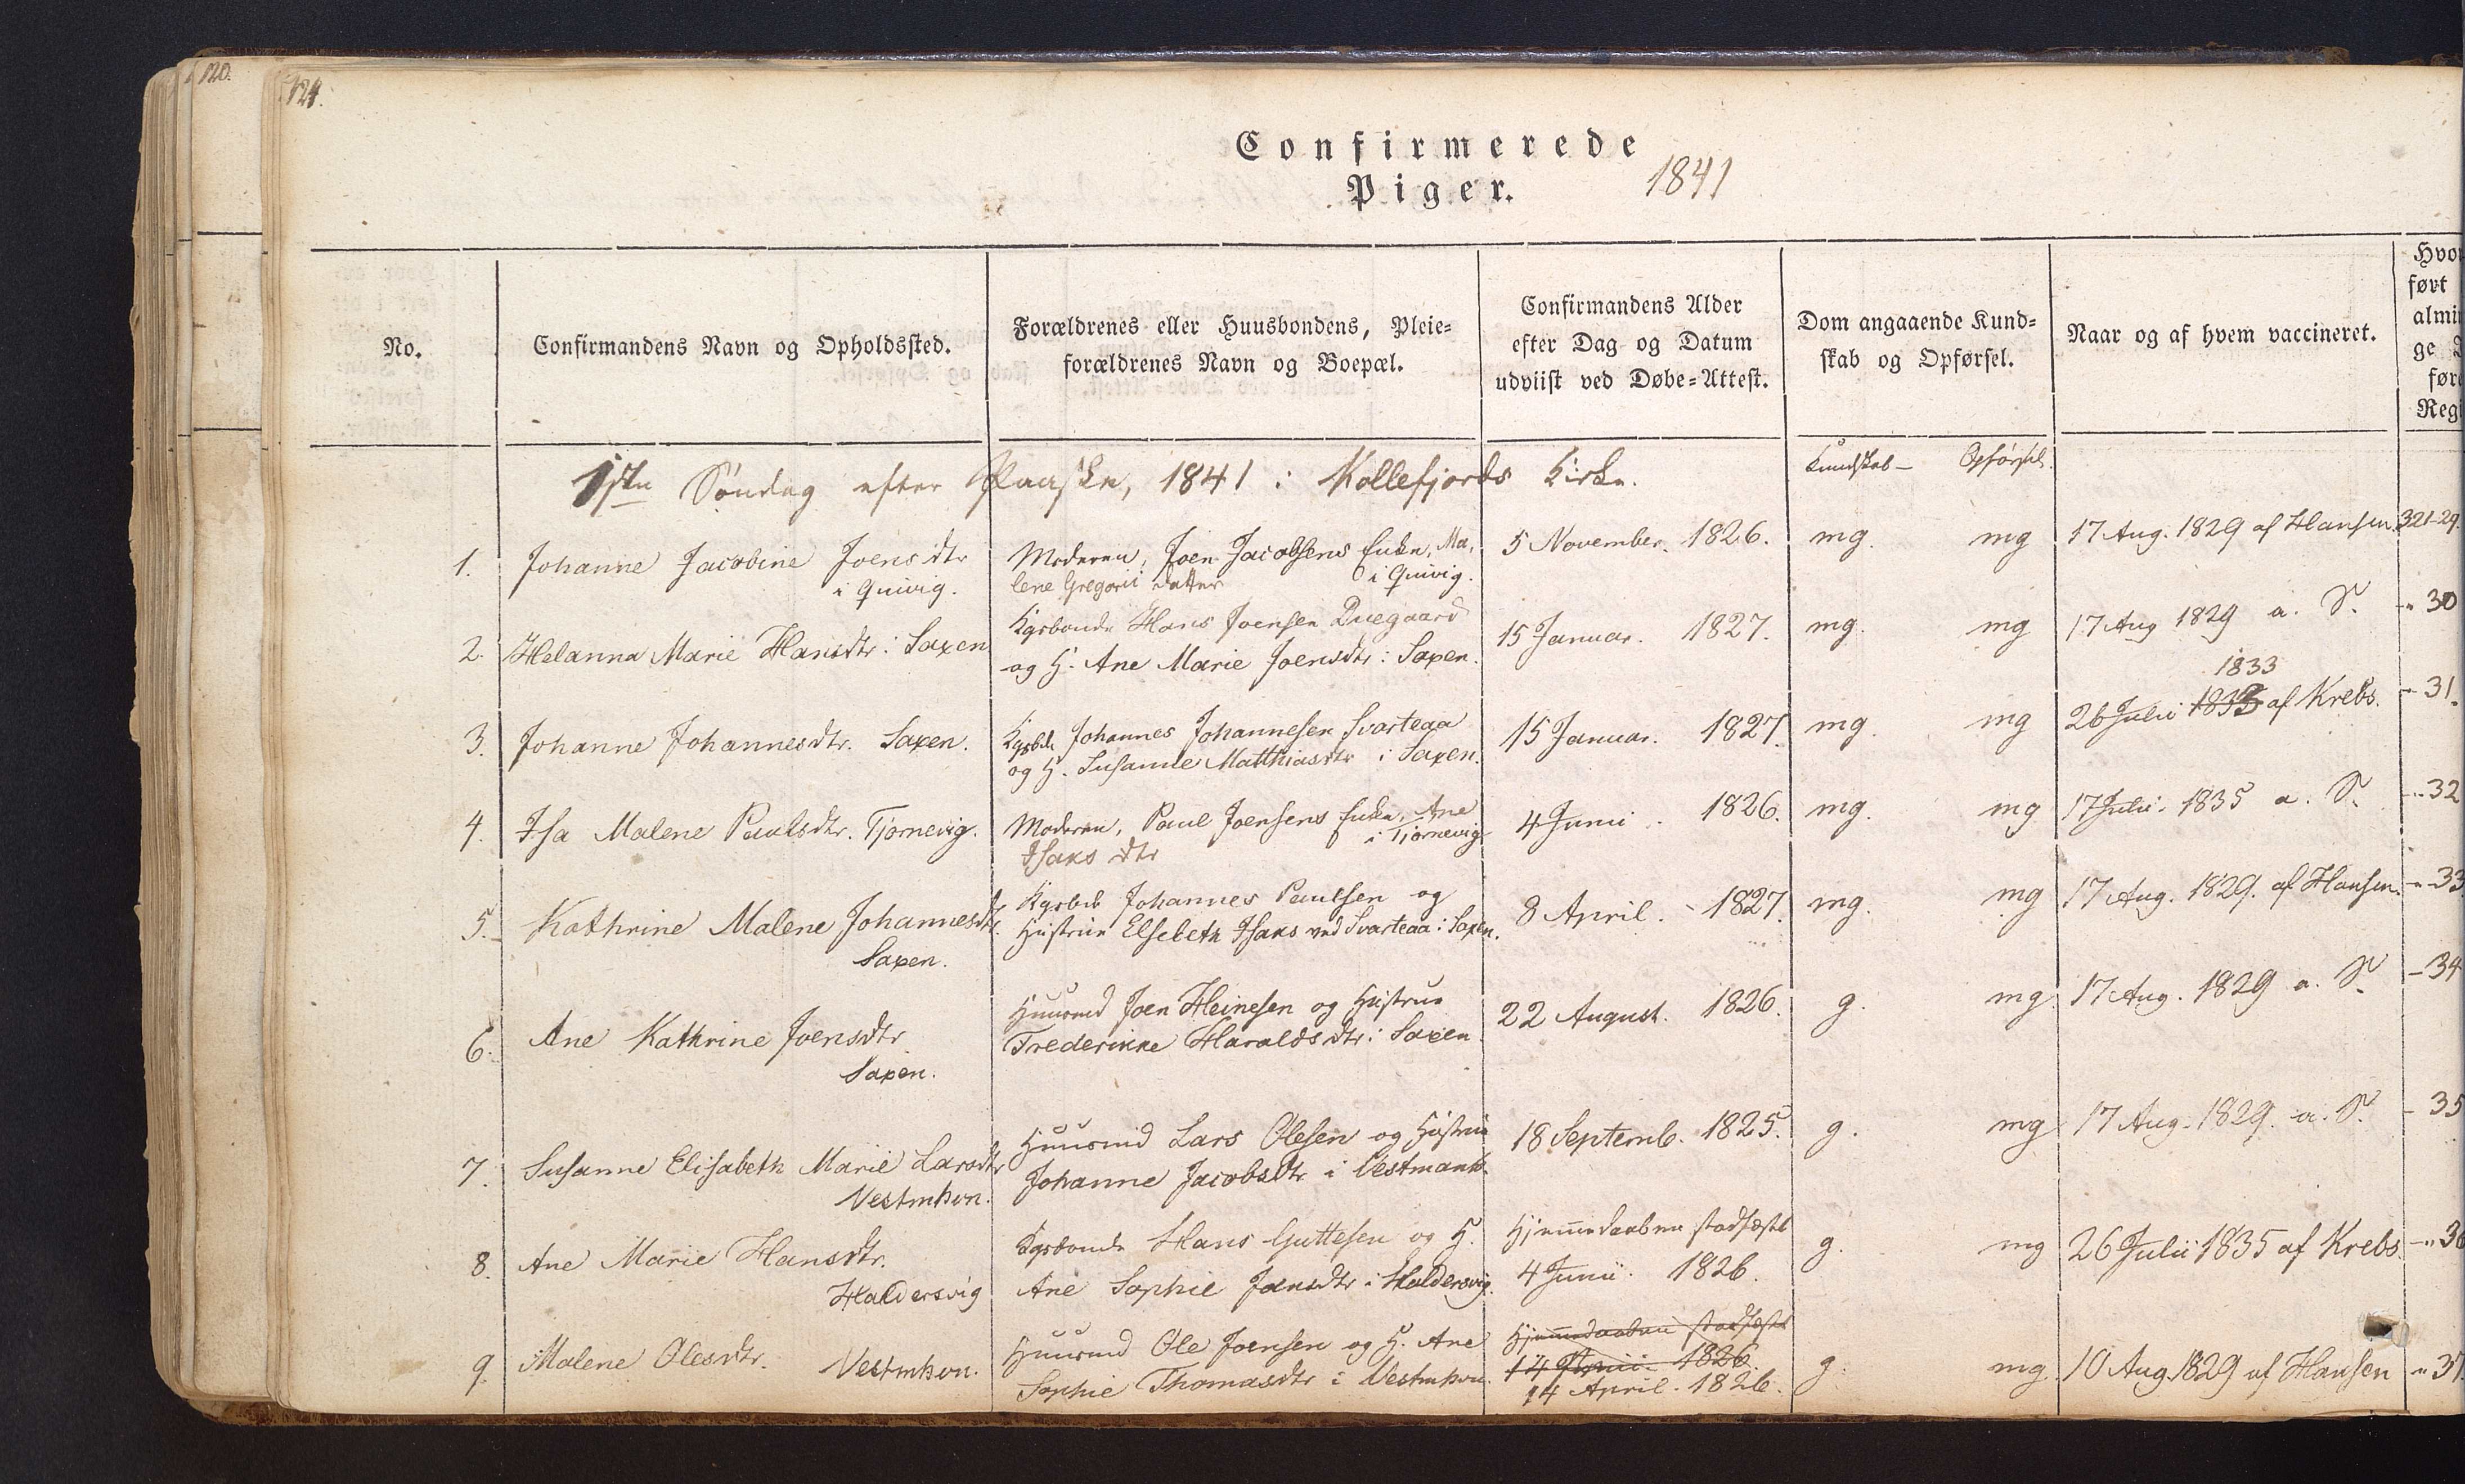 120.
121.
Confirmerede
Piger. 1841
No.
Confirmandens Navn og Opholdssted.
Forældrenes eller Huusbondens, Pleie=
forældrenes Navn og Boepæl.
Confirmandens Alder
efter Dag og Datum
udviist ved Døbe=Attest.
Dom angaaende Kund=
skab og Opførsel.
Naar og af hvem vaccineret.
Hvor
ført
almi
ge
føre
Regi
1ste Søndag efter Paaske, 1841 i Kollefjords Kirke.
Kundskab – Opførsel.
1. Johanne Jacobine Joensdtr
i Quivig.
Moderen, Joen Jacobsens Enke, Ma,
lene Gregorii datter i Quivig.
5 November. 1826. mg. mg 17 Aug. 1829 af Hansen. 321-29.
2. Helanna Marie Hansdtr i Saxen
Kgsbonde Hans Joensen Duegaard
og H. Ane Marie Joensdtr i Saxen.
15 Januar. 1827. mg. mg 17 Aug 1829 a. S. -" 30
3. Johanne Johannesdtr. Saxen.
Kgsbde Johannes Johannesen Svarteaa
og H. Susanne Matthiasdtr i Saxen.
15 Januar. 1827. mg. mg
1833
26 Julii 1833 af Krebs. -" 31.
4. Isa Malene Paulsdtr. Tjørnevig.
Moderen, Paul Joensens Enke, Ane
Isaks dtr i Tjørnevig
4 Junii . 1826. mg. mg 17 Julii. 1835 a. S. -" 32
5. Kathrine Malene Johannesdtr.
Saxen.
Kgsbde Johannes Paulsen og
Hustrue Elsebeth Isaks ved Svarteaa i Saxen.
8 April. - 1827. mg. mg 17 Aug. 1829. af Hansen. -" 33
6. Ane Kathrine Joensdtr
Saxen.
Huusmd Joen Heinesen og Hustrue
Frederikke Haraldsdtr i Saxen
22 August. 1826. g. mg. 17 Aug. 1829 a. S. - 34
7. Susanne Elisabeth Marie Larsdtr
Vestmhvn.
Huusmd Lars Olesen og Hustrue
Johanne Jacobsdtr i Vestmanh.
18 Septemb. 1825. g. mg 17 Aug. 1829. a. S. - 35
8. Ane Marie Hansdtr.
Haldersvig
Kgsbonde Hans Guttesen og H.
Ane Sophie Joensdtr i Haldersvig.
Hjemmedaaben stadfæstet
4 Junii. 1826. g. mg 26 Julii 1835 af Krebs. -" 36
9. Malene Olesdtr. Vestmhvn.
Huusmd Ole Joensen og H. Ane
Sophie Thomasdtr i Vestmhvn.
Hjemmedaaben stadfæstet
14 Junii. 1826.
14 April. 1826. g. mg. 10 Aug. 1829 af Hansen " 37.